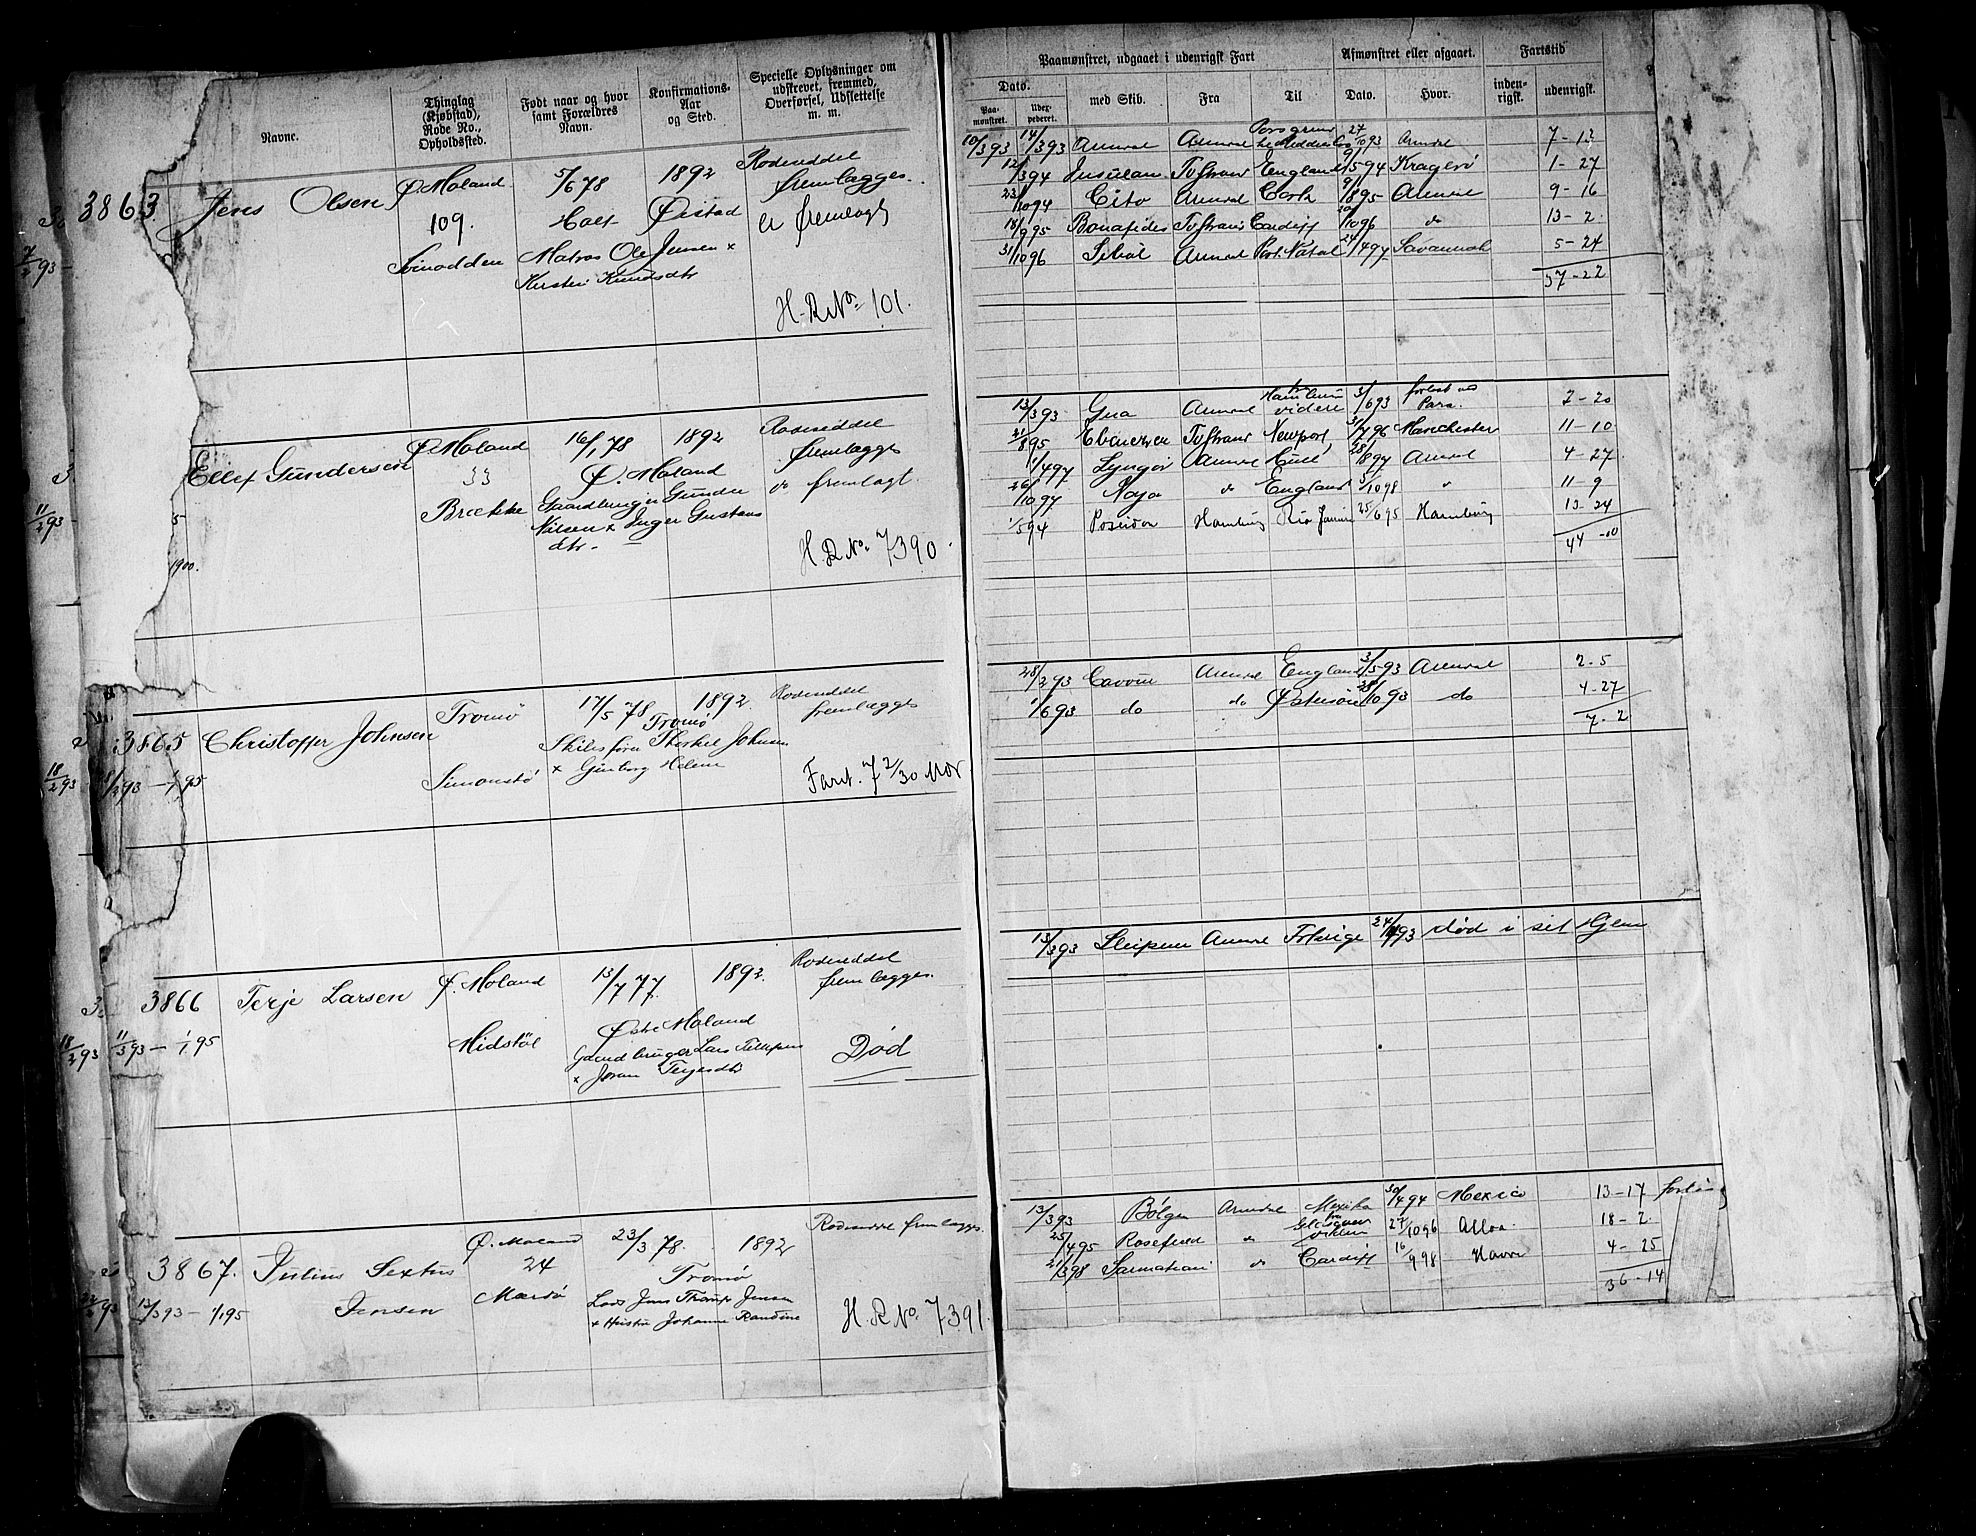 Navne.
Thinglag (Kjøbstad), Rode No., Opholdssted.
Født naar og hvor samt Forældres Navn.
Konfirmations-Aar og Sted.
Specielle Oplysninger om udskrevet, fremmed, Overførsel, Udslettelse m. m.
Paamønstret, udgaaet i udenrigsk Fart
Afmønstret eller afgaaet.
Fartstid
Dato.
Paa-mønstret.
med Skib.
Fra
Til
Dato.
Hvor.
inden-rigsk.
udenrigsk.
3863 Jens Olsen
Ø. Moland
109.
Svinodden
5/6 78
Holt
Matros Ole Jensen x
Kirsten Knudsdtr
1892
Øistad
Rodeseddel
fremlægges.
er fremlagt
H-R No. 101.
10/3 93 14/3 93 Arendal Arendal 27/10 93 Arendal 7-13
12/3 94 Insulan Tvstrand England 9/5 94 Kragerø 1-27
23/10 94 Cito Arendal Cork 9/8 95 Arendal 9-16
18/9 95 Bonafides Tvstrand Cardiff 20/10 96 do 13-2.
31/10 96 Arendal Port Natal 24/4 97 Savannah 5-24
37-22
7/2 93
Ellef Gundersen
Ø. Moland
33
Brække
16/1 78
Ø. Moland
Gaardbruger Gunder
Nilsen x Inger Gustavs
dtr.
1892
Rodeseddel
fremlægges
do fremlagt.
H R No. 7390.
11/2 93
5
1900.
13/3 93 Gua Arendal 3/6 93 forlist ved Para. 2-20
21/8 95 Ebenezer Tvstrand Newport 31/7 96 Manchester 11-10
1/4 97 Lyngør Arendal Hull 28/8 97 Arendal 4-27.
26/10 97 do England 3/10 98 " 11-9
1/5 94 Poseidon Hamburg Rio Janeiro 25/6 95 Hamburg 13-24
44-00
3865 Christoffer Johnsen
Tromø
Simonstø
17/5 78
Tromø
Skibsfører Thorkel Johnsen
x Gunborg Helene
1892.
Rodeseddel
fremlægges
Fart. 7 2/30 Mdr
18/2 93
28/2 93 Arendal England 3/5 93 Arendal 2-5
1/6 93 do do Østersøen 28/10 93 do 4-27
7-2
3866 Terje Larsen
Ø. Moland
Midstøl
13/7 77.
Østre Moland
Gaardbruger Lars Tellefsen
x Joran Terjesdtr
1892.
Rodeseddel
fremlægges.
Død
18/2 93 11/3 93 - 1/1 95
13/3 93 Sleipner Arendal død i sit Hjem
3867. Julius Sextus
Jensen
Ø. Moland
24
Mærdø
23/3 78.
Tromø
Lods Jens Jensen
x Hustru Johanne Randine
1892
Rodeseddel fremlægges.
H. R No. 7391.
13/3 93 - 1/1 95
13/3 93 Bølgen Arendal Mexiko 30/4 94 Mexico 13-17
25/4 95 do 27/10 96 Alloa. 18-2
21/3 98 Sarmatian do Cardiff 16/9 98 Havre 4-25
36-14